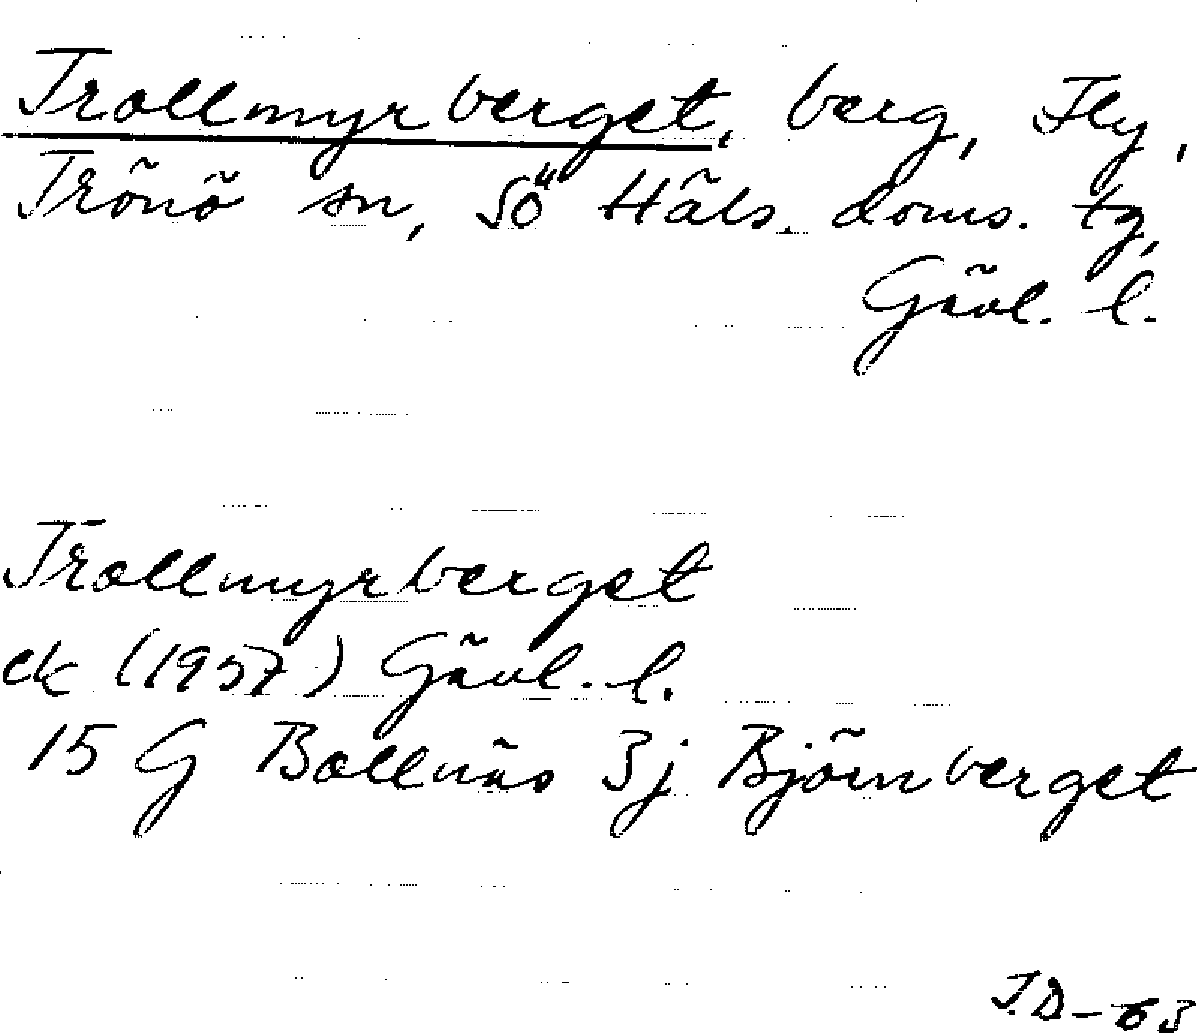 Trollmyrberget, berg, Fly,
Trönö sn, Sö Häls. doms. tg,
Gävl. l.
Trollmyrberget
ek (1957) Gävl. l.
15 G Bollnäs 3j Björnberget
J.D-63